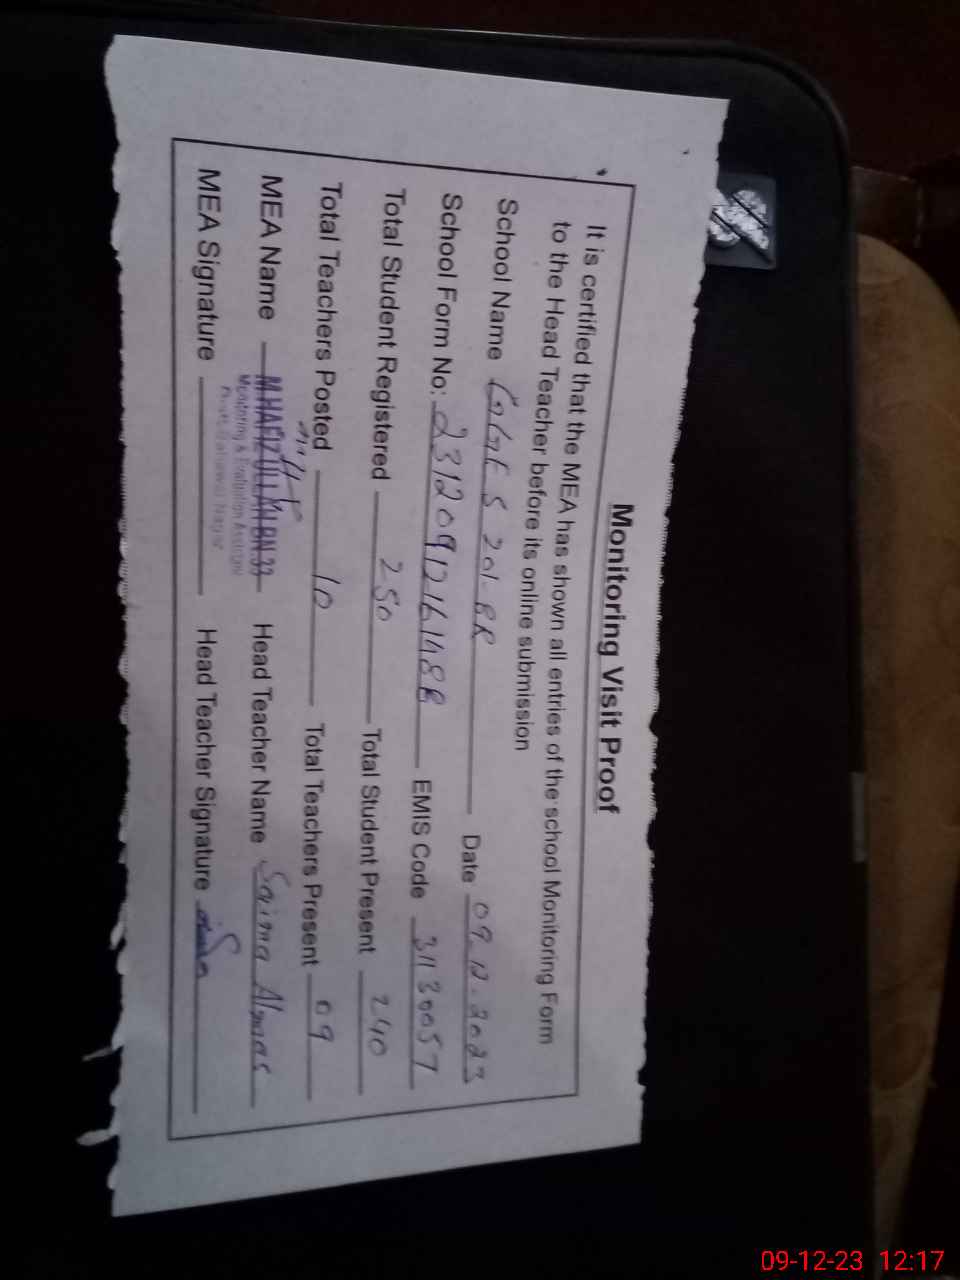 Monitoring Visit Proof
It is certified that the MEA has shown all entries of the school Monitoring Form
to the Head Teacher before its online submission
School Name GGES 201-8R Date 09.12.2023
School Form No: EMIS Code 31130057
Total Student Registered 250 Total Student Present 240
Total Teachers Posted 10 Total Teachers Present 09
MEA Name M.HAFIZ ULLAH BN.33 Head Teacher Name Saima Almas
Monitoring & Evaluation Assistant
Bahawal Nagar
MEA Signature Head Teacher Signature
09-12-23 12:17